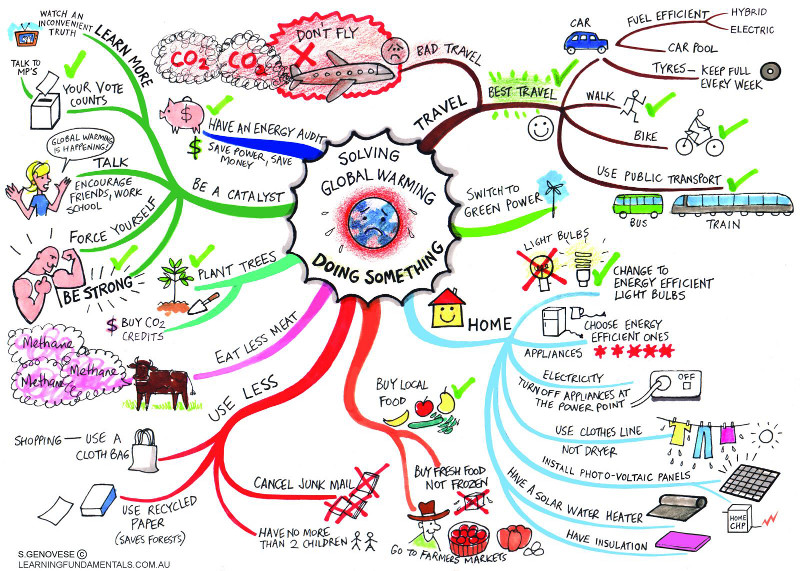 SOLVING
GLOBAL WARMING
DOING SOMETHING
TRAVEL
BAD TRAVEL
DON'T FLY
CO2
CO2
BEST TRAVEL
CAR
FUEL EFFICIENT
HYBRID
ELECTRIC
CAR POOL
TYRES — KEEP FULL
EVERY WEEK
WALK
BIKE
USE PUBLIC TRANSPORT
BUS
TRAIN
SWITCH TO
GREEN POWER
HOME
LIGHT BULBS
CHANGE TO
ENERGY EFFICIENT
LIGHT BULBS
APPLIANCES
CHOOSE ENERGY
EFFICIENT ONES
ELECTRICITY
TURN OFF APPLIANCES AT
THE POWER POINT
OFF
USE CLOTHES LINE
NOT DRYER
INSTALL PHOTO-VOLTAIC PANELS
HOME
CHP
HAVE A SOLAR WATER HEATER
HAVE INSULATION
BUY LOCAL
FOOD
BUY FRESH FOOD
NOT FROZEN
GO TO FARMERS MARKETS
USE LESS
SHOPPING — USE A
CLOTH BAG
USE RECYCLED
PAPER
(SAVES FORESTS)
CANCEL JUNK MAIL
HAVE NO MORE
THAN 2 CHILDREN
EAT LESS MEAT
Methane
Methane
Methane
PLANT TREES
$ BUY CO2
CREDITS
BE A CATALYST
LEARN MORE
WATCH AN
INCONVENIENT
TRUTH
YOUR VOTE
COUNTS
TALK TO
MP'S
TALK
GLOBAL WARMING
IS HAPPENING!
ENCOURAGE
FRIENDS, WORK
SCHOOL
FORCE YOURSELF
BE STRONG
HAVE AN ENERGY AUDIT
$
$ SAVE POWER, SAVE
MONEY
S.GENOVESE ©
LEARNINGFUNDAMENTALS.COM.AU